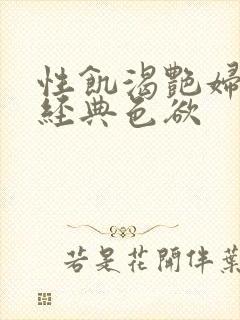 性飢渴艷婦
經典色欲
若是花開伴葉